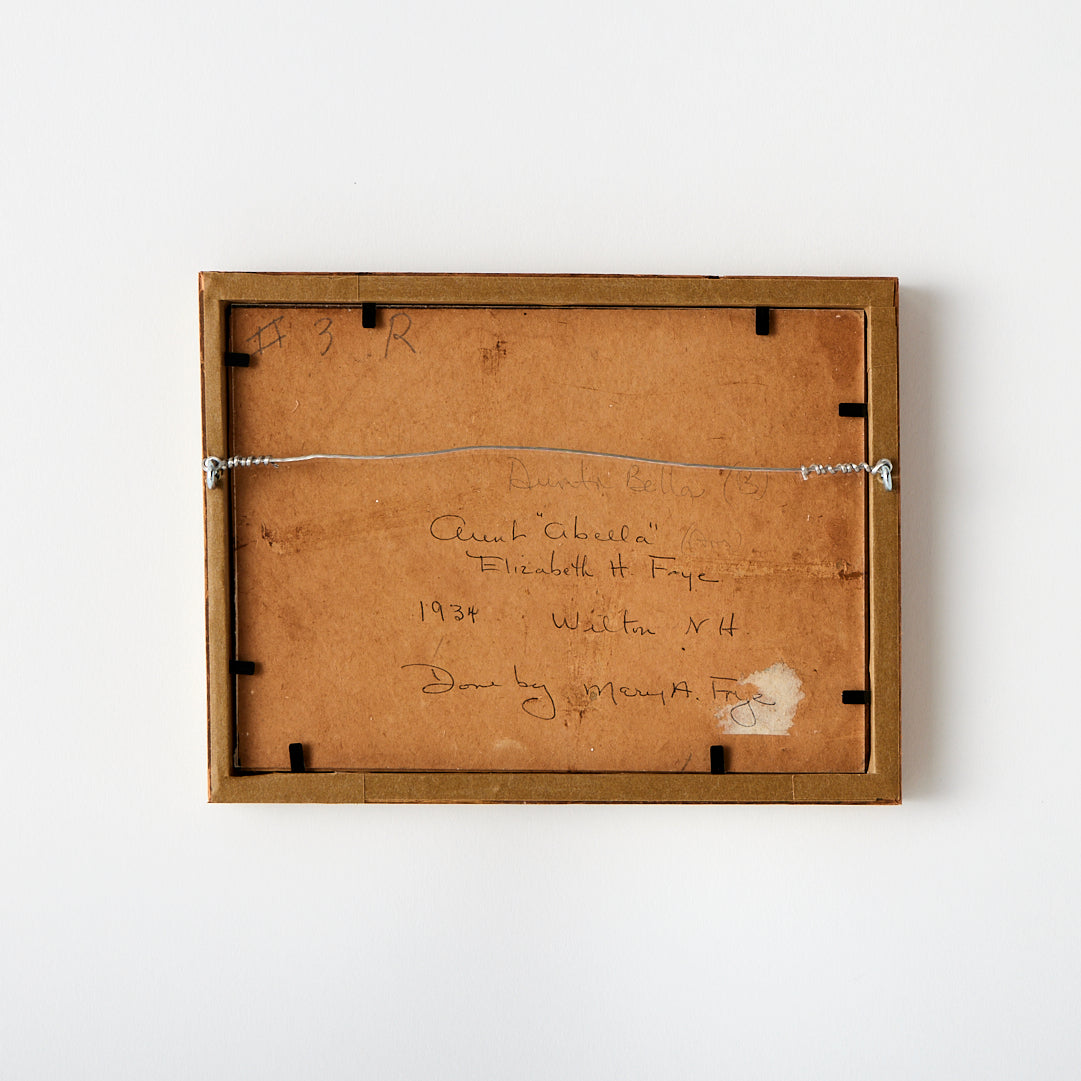 # 3 R
Aunt Bella (B)
Aunt "Abella"
Elizabeth H. Frye
1934 Wilton N H.
Done by Mary A. Frye